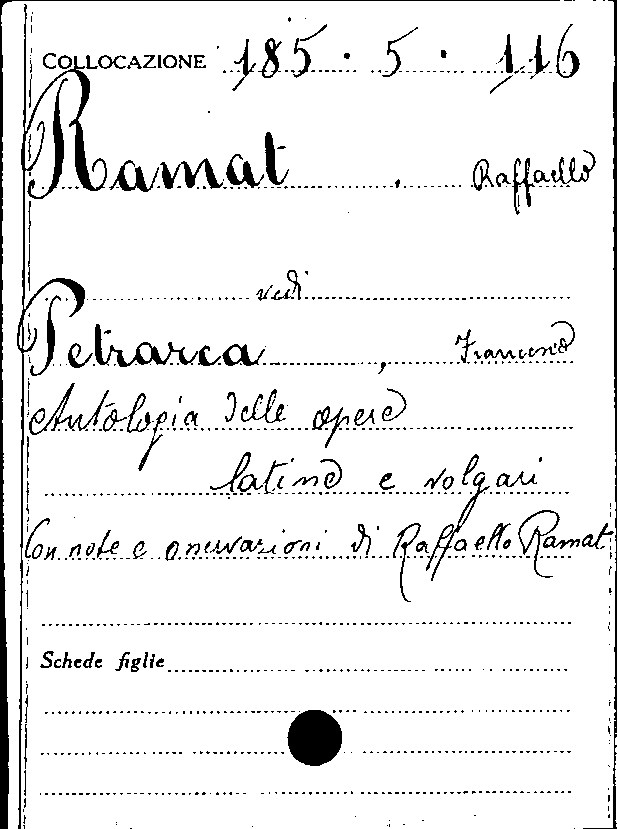 COLLOCAZIONE 185 . 5 . 116
Ramat , Raffaello
vedi
Petrarca , Francesco
Antologia delle opere
latine e volgari
Con note e osservazioni di Raffaello Ramat
Schede figlie